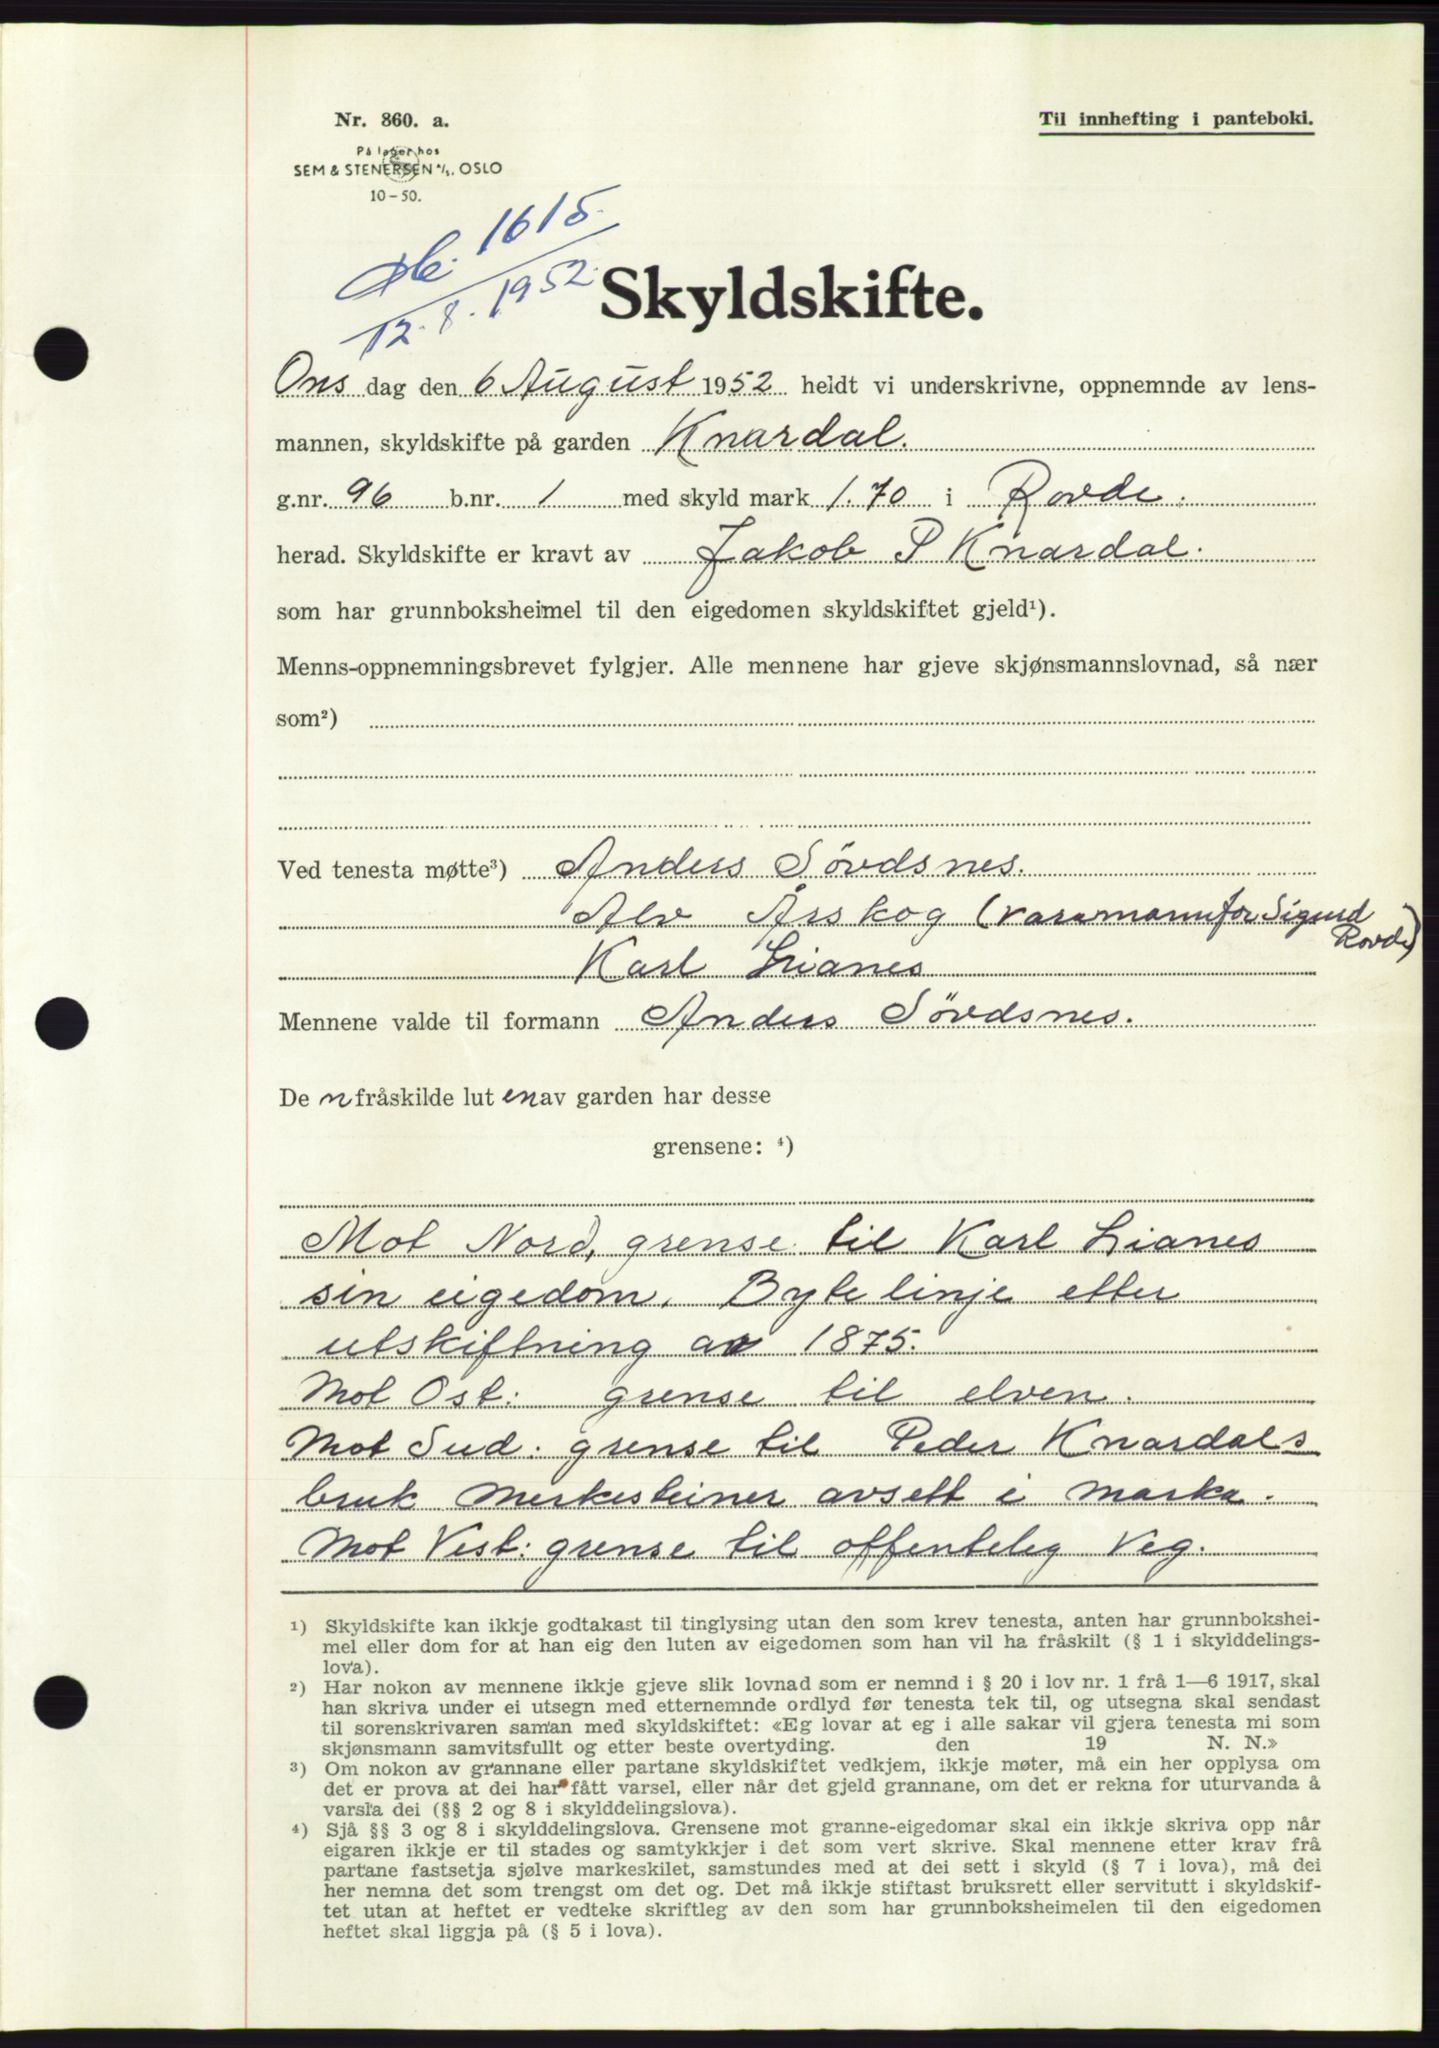 Nr. 860. a.
Til innhefting i panteboki.
På lager hos
SEM & STENERSEN A/S, OSLO
10-50.
Db. 1615.
12.8.1952.
Skyldskifte.
Ons dag den 6 August 1952 heldt vi underskrivne, oppnemnde av lens-
mannen, skyldskifte på garden Knardal.
g.nr. 96 b.nr. 1 med skyld mark 1.70 i Rovde.
herad. Skyldskifte er kravt av Jakob P Knardal.
som har grunnboksheimel til den eigedomen skyldskiftet gjeld¹).
Menns-oppnemningsbrevet fylgjer. Alle mennene har gjeve skjønsmannslovnad, så nær
som²)
Ved tenesta møtte³) Anders Sövdsnes.
Alv Årskog (varamann for Sigurd
Rovde)
Karl Lianes
Mennene valde til formann Anders Sövdsnes.
De n fråskilde lut en av garden har desse
grensene: ⁴)
Mot Nord, grense til Karl Lianes
sin eigedom. Byte linje etter
utskiftning av 1875.
Mot Ost: grense til elven.
Mot Sud: grense til Peder Knardals
bruk Merkesteiner avsett i marka.
Mot Vest: grense til offenteleg Veg.
¹) Skyldskifte kan ikkje godtakast til tinglysing utan den som krev tenesta, anten har grunnbokshei-
mel eller dom for at han eig den luten av eigedomen som han vil ha fråskilt (§ 1 i skylddelings-
lova).
²) Har nokon av mennene ikkje gjeve slik lovnad som er nemnd i § 20 i lov nr. 1 frå 1—6 1917, skal
han skriva under ei utsegn med etternemnde ordlyd før tenesta tek til, og utsegna skal sendast
til sorenskrivaren saman med skyldskiftet: «Eg lovar at eg i alle sakar vil gjera tenesta mi som
skjønsmann samvitsfullt og etter beste overtyding. den 19 N. N.»
³) Om nokon av grannane eller partane skyldskiftet vedkjem, ikkje møter, må ein her opplysa om
det er prova at dei har fått varsel, eller når det gjeld grannane, om det er rekna for uturvanda å
varsla dei (§§ 2 og 8 i skylddelingslova).
⁴) Sjå §§ 3 og 8 i skylddelingslova. Grensene mot granne-eigedomar skal ein ikkje skriva opp når
eigaren ikkje er til stades og samtykkjer i det som vert skrive. Skal mennene etter krav frå
partane fastsetja sjølve markeskilet, samstundes med at dei sett i skyld (§ 7 i lova), må dei
her nemna det som trengst om det og. Det må ikkje stiftast bruksrett eller servitutt i skyldskif-
tet utan at heftet er vedteke skriftleg av den som har grunnboksheimelen til den eigedomen
heftet skal liggja på (§ 5 i lova).